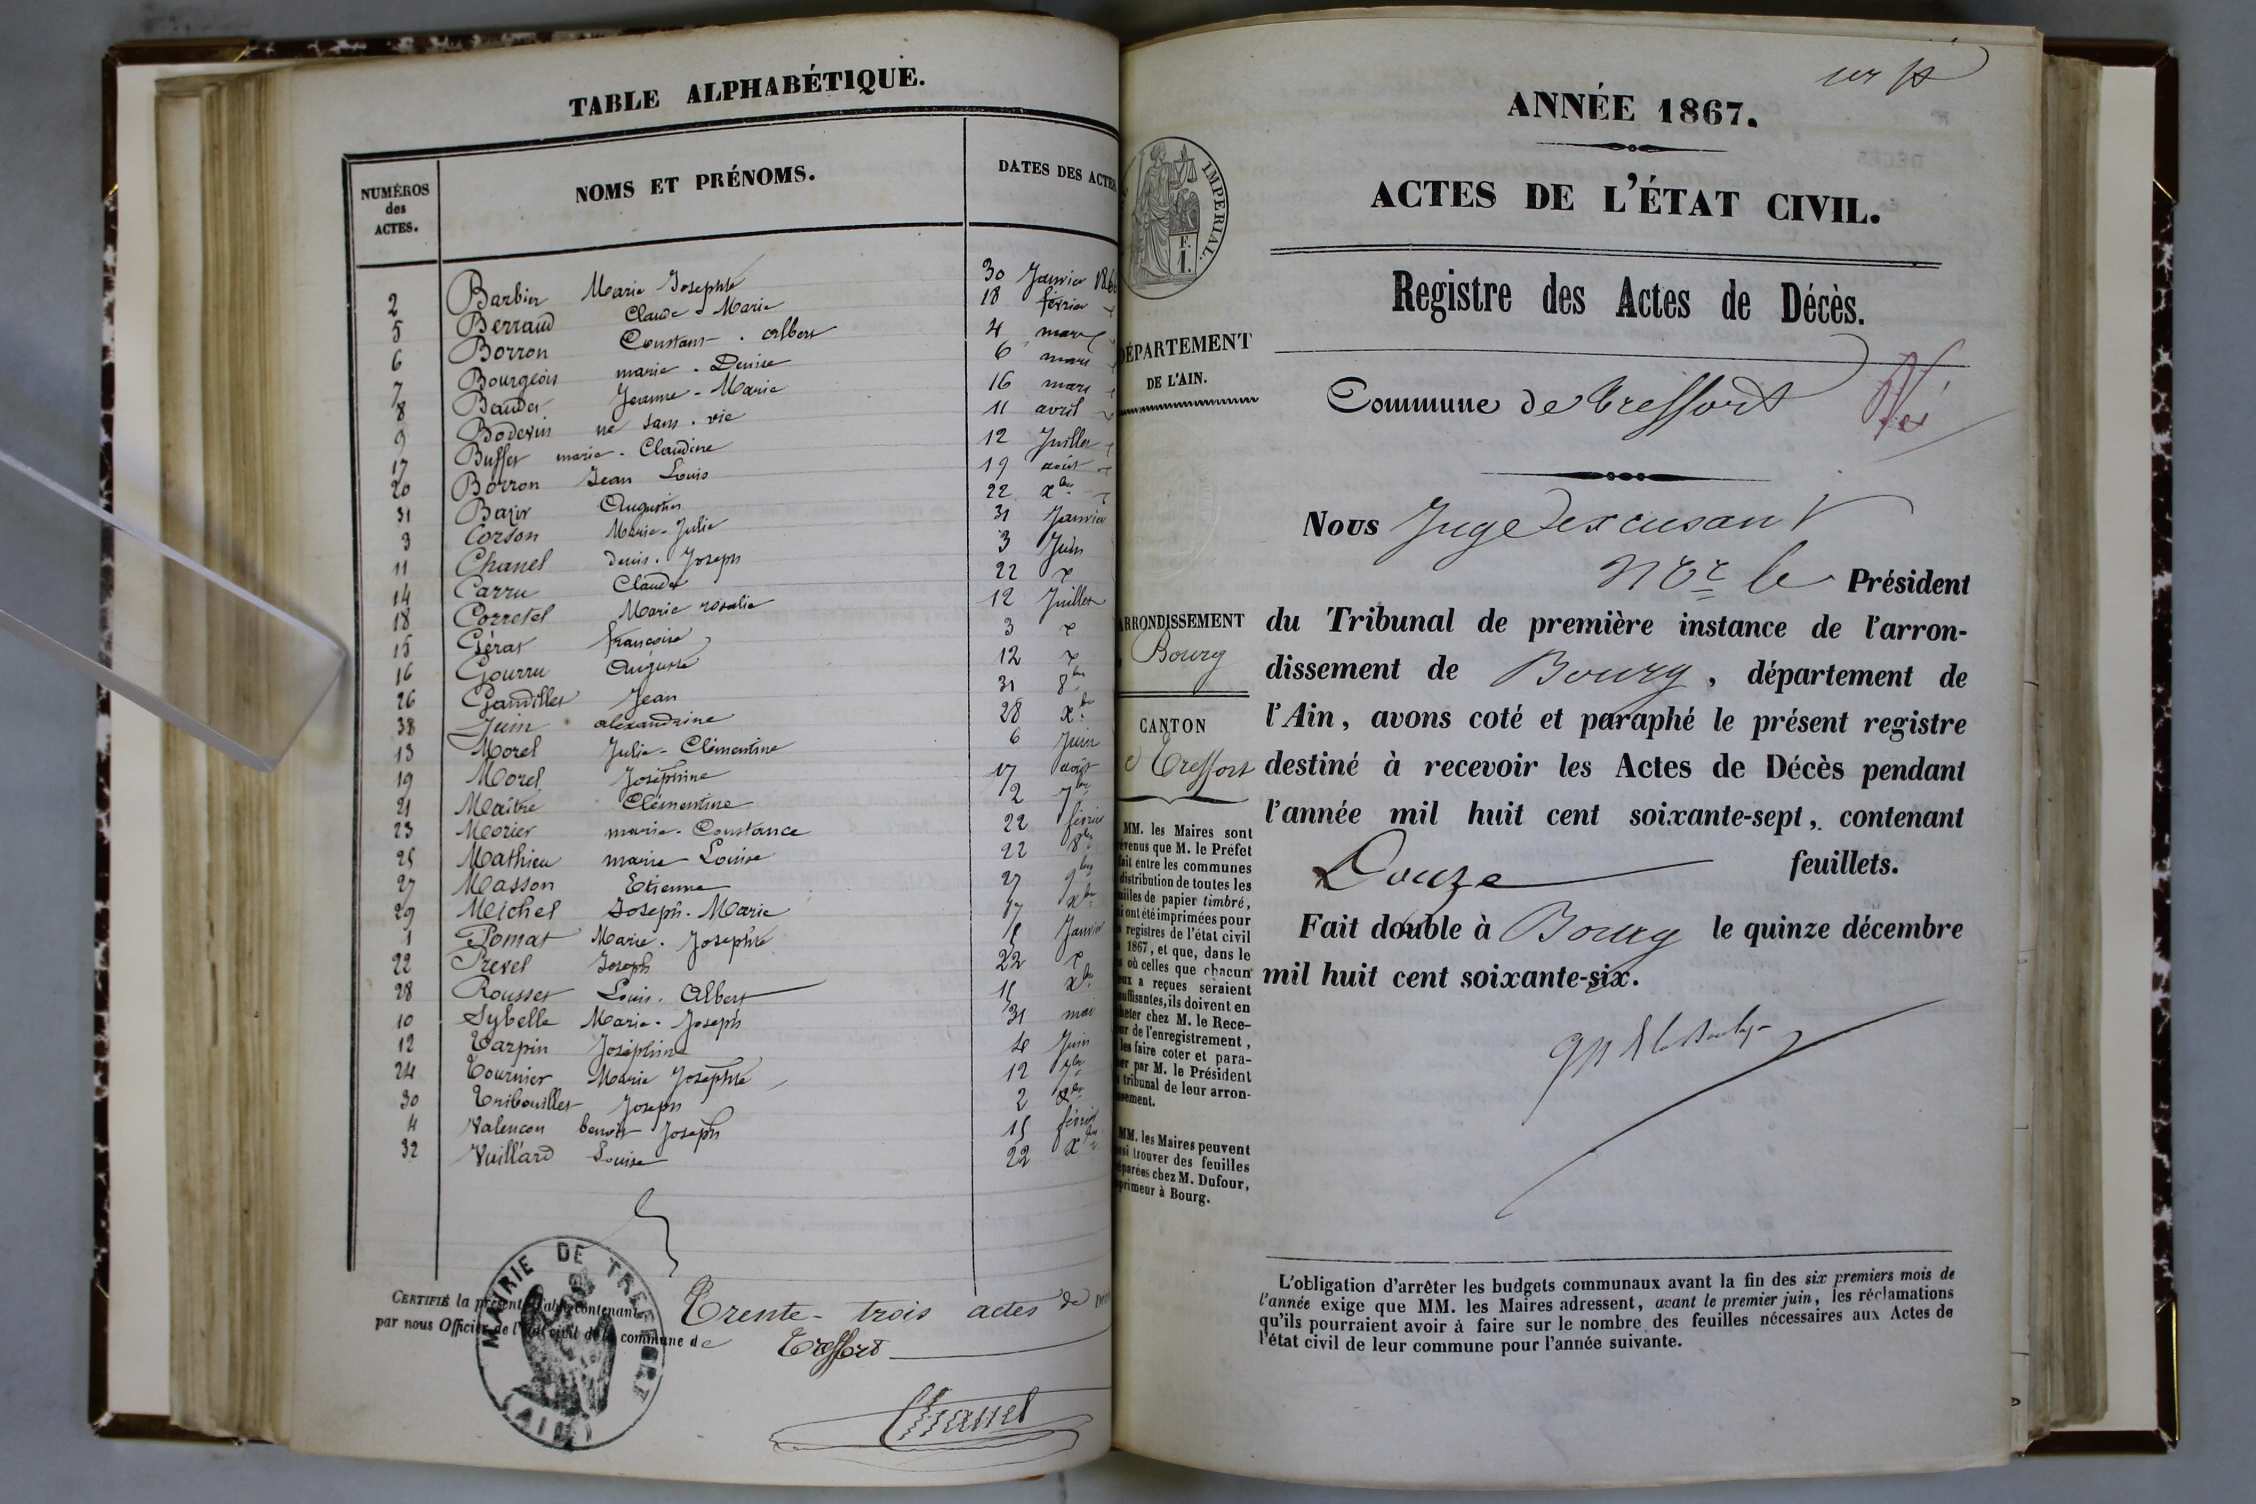 TABLE ALPHABÉTIQUE.
NUMÉROS des ACTES.
NOMS ET PRÉNOMS.
DATES DES ACTES
2 Barbier Marie Josephte 30 Janvier 186
5 Berraud Claude Marie 18 février
6 Borron Constant. Albert 4 mars
7 Bourgeois marie. Denise 6 mars
8 Baudet Jeanne-Marie 16 mars
9 Bodevin né sans. vie 11 avril
17 Buffet marie. Claudine 12 Juillet
20 Borron Jean Louis 19 août
31 Augustin 22 xbre
3 Corson Marie-Julie 31 Janvier
11 Chanel denis. Joseph 3 Juin
14 Carru Claude 22
18 Corretel Marie rosalie 12 Juillet
15 Gérat françoise 3
16 Gourru Auguste 12
26 Gandillet Jean 31 8bre
38 Juin alexandrine 28 xbre
13 Morel Julie-Clémentine 6 Juin
19 Morel Joséphine 17 août
21 Maître Clémentine 2 7bre
23 Morier marie-Constance 22 février
25 Mathieu marie-Louise 22 8bre
27 Masson Etienne 27 9bre
29 Michel Joseph. Marie 17 xbre
1 Pomat Marie. Josephte Janvier
22 Prevel Joseph 22
28 Rousset Louis. Albert 15 xbre
10 Sybelle Marie-Joseph 31 mai
12 Tarpin Joséphine 4 Juin
24 Tournier Marie Josephte 12
30 Tribouillet Joseph 2 xbre
4 Valencon benoit Joseph 15 février
32 Vuillard Louise 22 xbre
CERTIFIÉ la présente table contenant Trente-trois actes de
par nous Officier de l'état civil de la commune de Treffort
MAIRIE DE TREFFORT
(AIN)
Chanel
ANNÉE 1867.
ACTES DE L'ÉTAT CIVIL.
Registre des Actes de Décès.
IMPERIAL.
F.
1.
DÉPARTEMENT
DE L'AIN.
Commune de Treffort
Nous Juge excusant
Mr le Président
ARRONDISSEMENT
Bourg
du Tribunal de première instance de l'arron-
dissement de Bourg, département de
l'Ain, avons coté et paraphé le présent registre
CANTON
Treffort
destiné à recevoir les Actes de Décès pendant
l'année mil huit cent soixante-sept, contenant
Douze feuillets.
Fait double à Bourg le quinze décembre
mil huit cent soixante-six.
MM. les Maires sont
venus que M. le Préfet
fait entre les communes
distribution de toutes les
feuilles de papier timbré,
ont été imprimées pour
registres de l'état civil
1867, et que, dans le
où celles que chacun
eux a reçues seraient
suffisantes, ils doivent en
acheter chez M. le Rece-
eur de l'enregistrement,
les faire coter et para-
pher par M. le Président
tribunal de leur arron-
issement.
MM. les Maires peuvent
aussi trouver des feuilles
séparées chez M. Dufour,
imprimeur à Bourg.
L'obligation d'arrêter les budgets communaux avant la fin des six premiers mois de
l'année exige que MM. les Maires adressent, avant le premier juin, les réclamations
qu'ils pourraient avoir à faire sur le nombre des feuilles nécessaires aux Actes de
l'état civil de leur commune pour l'année suivante.